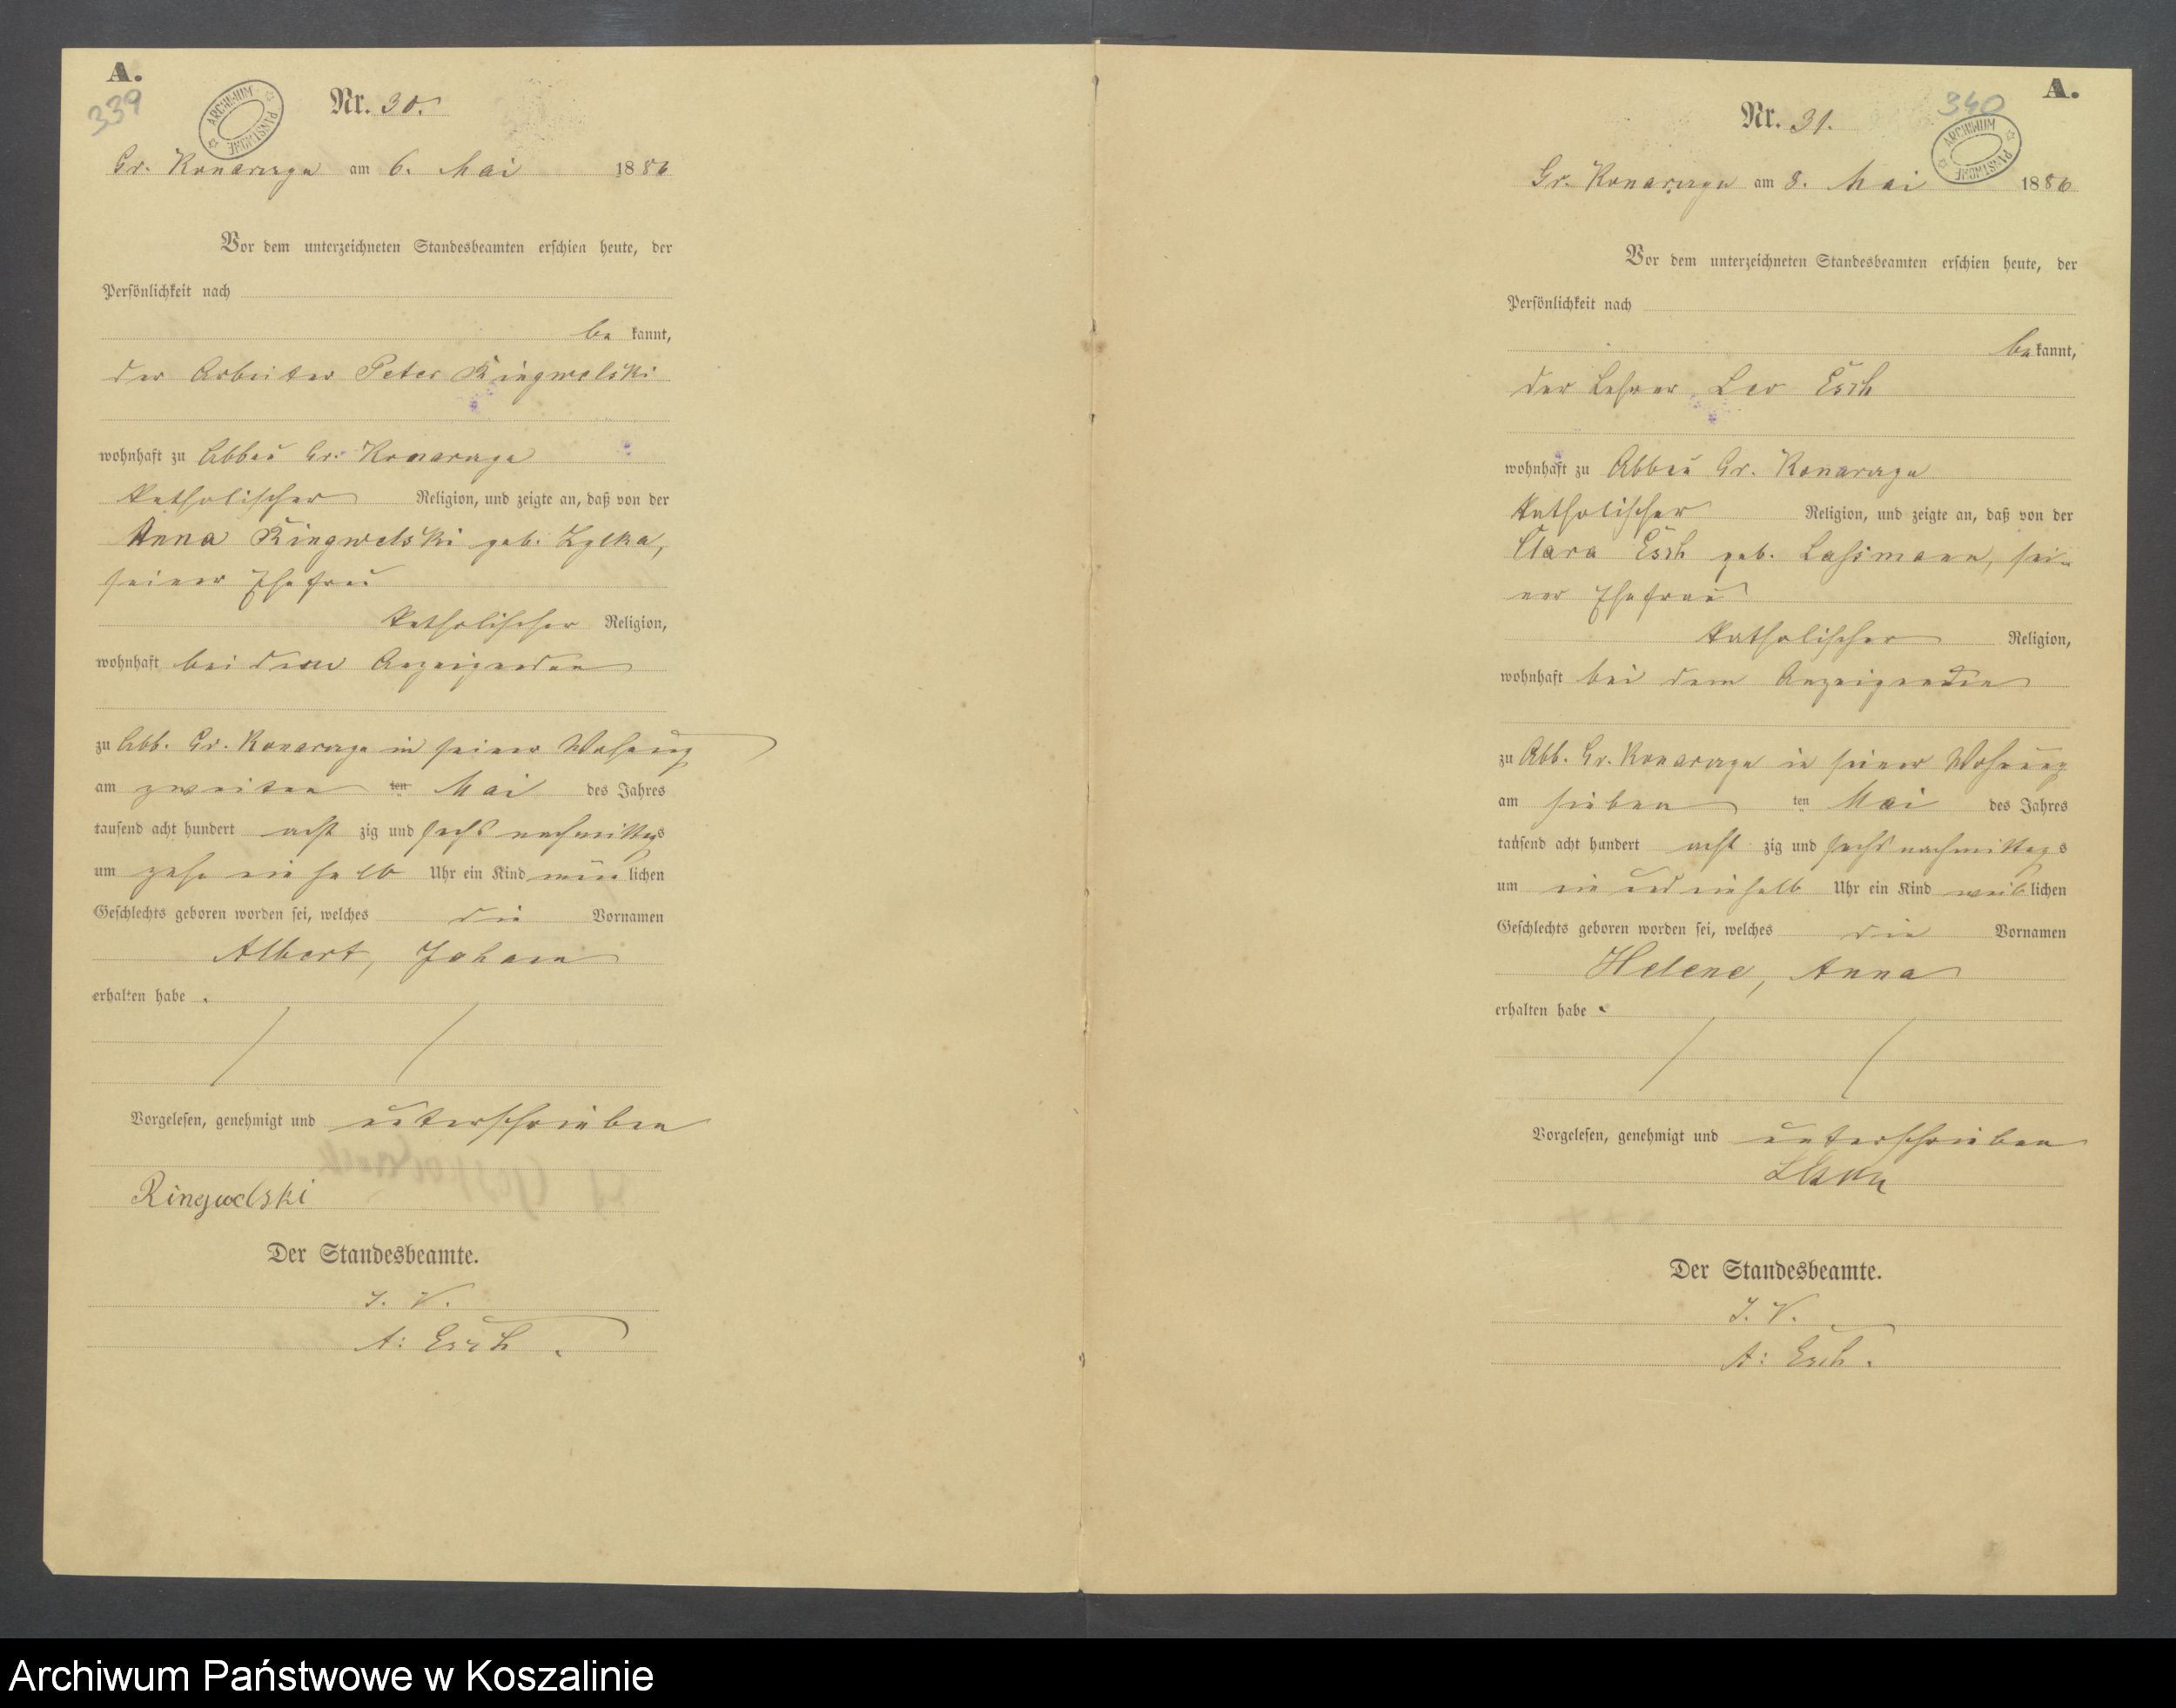 A.
339
ARCHIWUM PAŃSTWOWE
Nr. 30.
Gr. Konarczyn am 6. Mai 1886
Vor dem unterzeichneten Standesbeamten erschien heute, der
Persönlichkeit nach
be kannt,
der Arbeiter Peter Ringwelski
wohnhaft zu Abbau Gr. Konarczyn
katholischer Religion, und zeigte an, daß von der
Anna Ringwelski geb. Zylka,
seiner Ehefrau
katholischer Religion,
wohnhaft bei dem Anzeigenden
zu Abb. Gr. Konarczyn in seiner Wohnung
am zweiten ten Mai des Jahres
tausend acht hundert acht zig und sechs nachmittags
um zehn einhalb Uhr ein Kind männlichen
Geschlechts geboren worden sei, welches die Vornamen
Albert, Johann
erhalten habe .
Vorgelesen, genehmigt und unterschrieben
Ringwelski
Der Standesbeamte.
I. V.
A: Esch.
A.
340
ARCHIWUM PAŃSTWOWE
Nr. 31.
Gr. Konarczyn am 8. Mai 1886
Vor dem unterzeichneten Standesbeamten erschien heute, der
Persönlichkeit nach
bekannt,
der Lehrer Leo Esch
wohnhaft zu Abbau Gr. Konarczyn
katholischer Religion, und zeigte an, daß von der
Clara Esch geb. Lassmann, sei-
ner Ehefrau
katholischer Religion,
wohnhaft bei dem Anzeigenden
zu Abb. Gr. Konarczyn in seiner Wohnung
am sieben ten Mai des Jahres
tausend acht hundert acht zig und sechs nachmittags
um ein und einhalb Uhr ein Kind weiblichen
Geschlechts geboren worden sei, welches die Vornamen
Helene, Anna
erhalten habe .
Vorgelesen, genehmigt und unterschrieben
Der Standesbeamte.
I. V.
A: Esch.
Archiwum Państwowe w Koszalinie